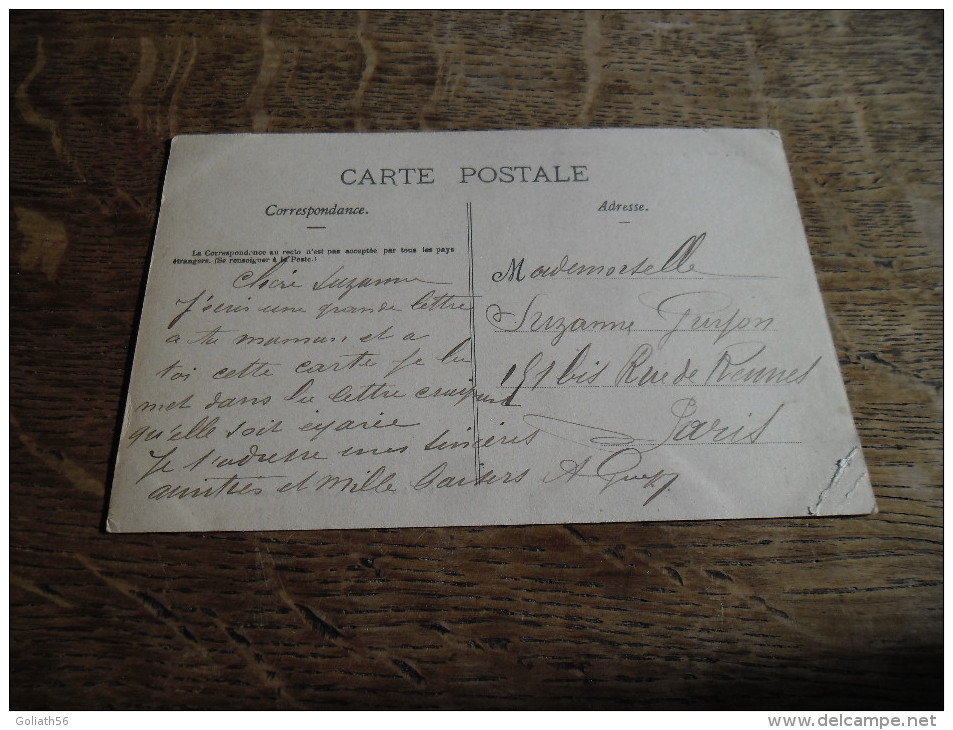 CARTE POSTALE
Correspondance.
Adresse.
La Correspondance au recto n'est pas acceptée par tous les pays
étrangers. (Se renseigner à la Poste.)
Chère Suzanne
J'écris une grande lettre
a ta maman et a
toi cette carte je la
met dans la lettre
qu'elle soit égarée
Je t'adresse mes sincères
amitiés et Mille Baisers A
Mademoiselle
Suzanne
151 bis Rue de Rennes
Paris
Goliath56
www.delcampe.net